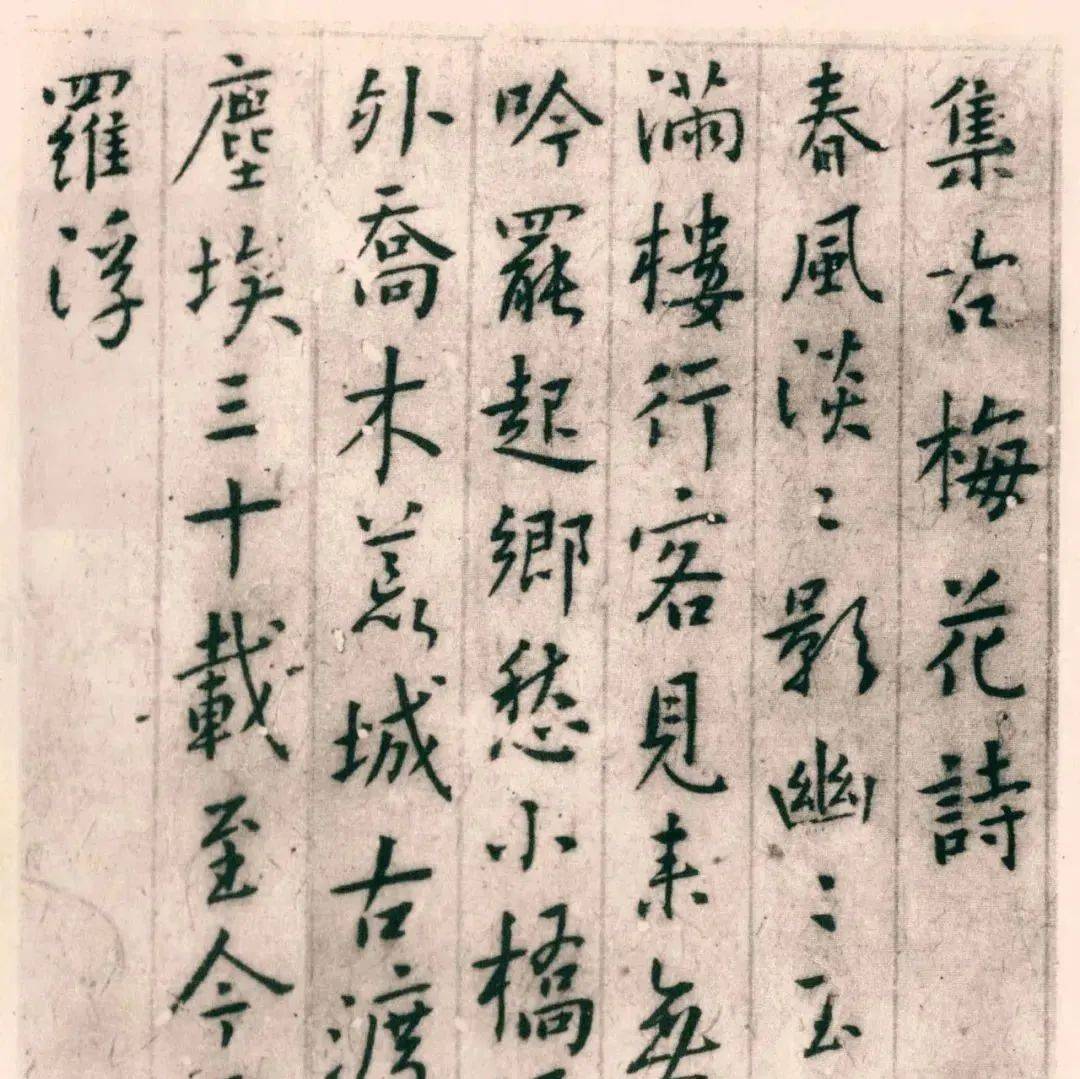 集古梅花詩
春風淡〻影幽〻玉
滿樓行客見來無
吟罷起鄉愁小橋
外喬木荒城古渡
塵埃三十載至今
羅浮